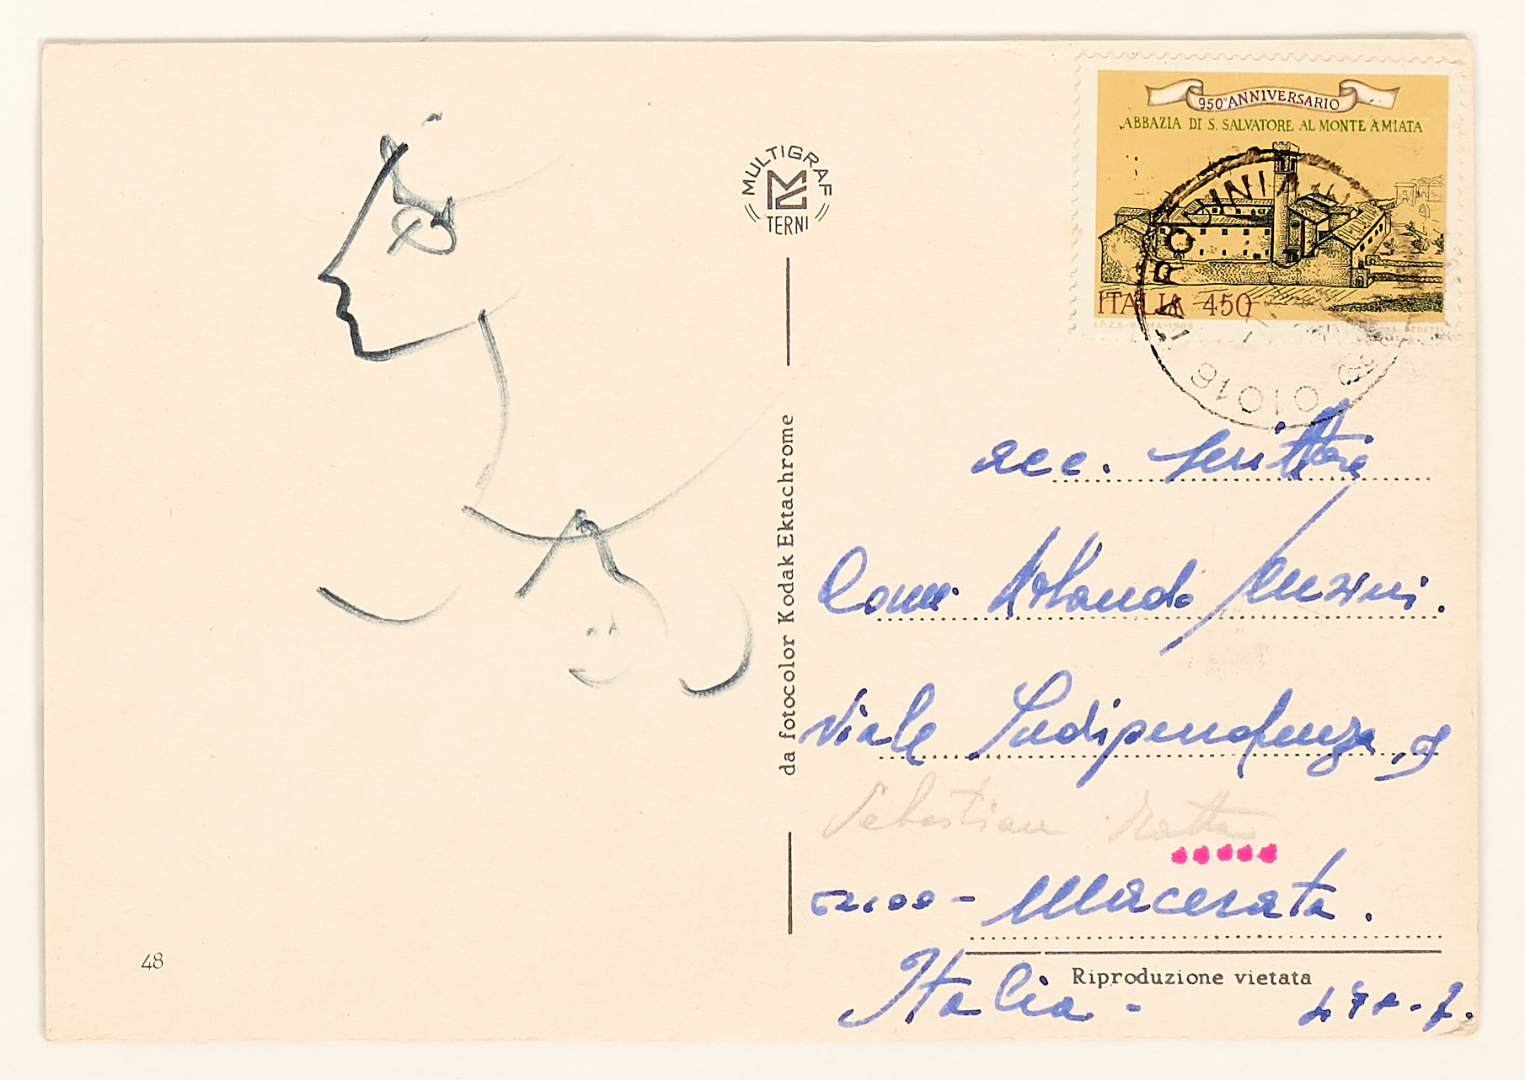 950° ANNIVERSARIO
ABBAZIA DI S. SALVATORE AL MONTE AMIATA
ITALIA 450
TARQUINIA
01016
MULTIGRAF
TERNI
da fotocolor Kodak Ektachrome
acc. scrittore
Comm. Rolando
Viale Indipendenza, 9
Sebastian Matta
62100 - Macerata.
Italia -
Riproduzione vietata
48